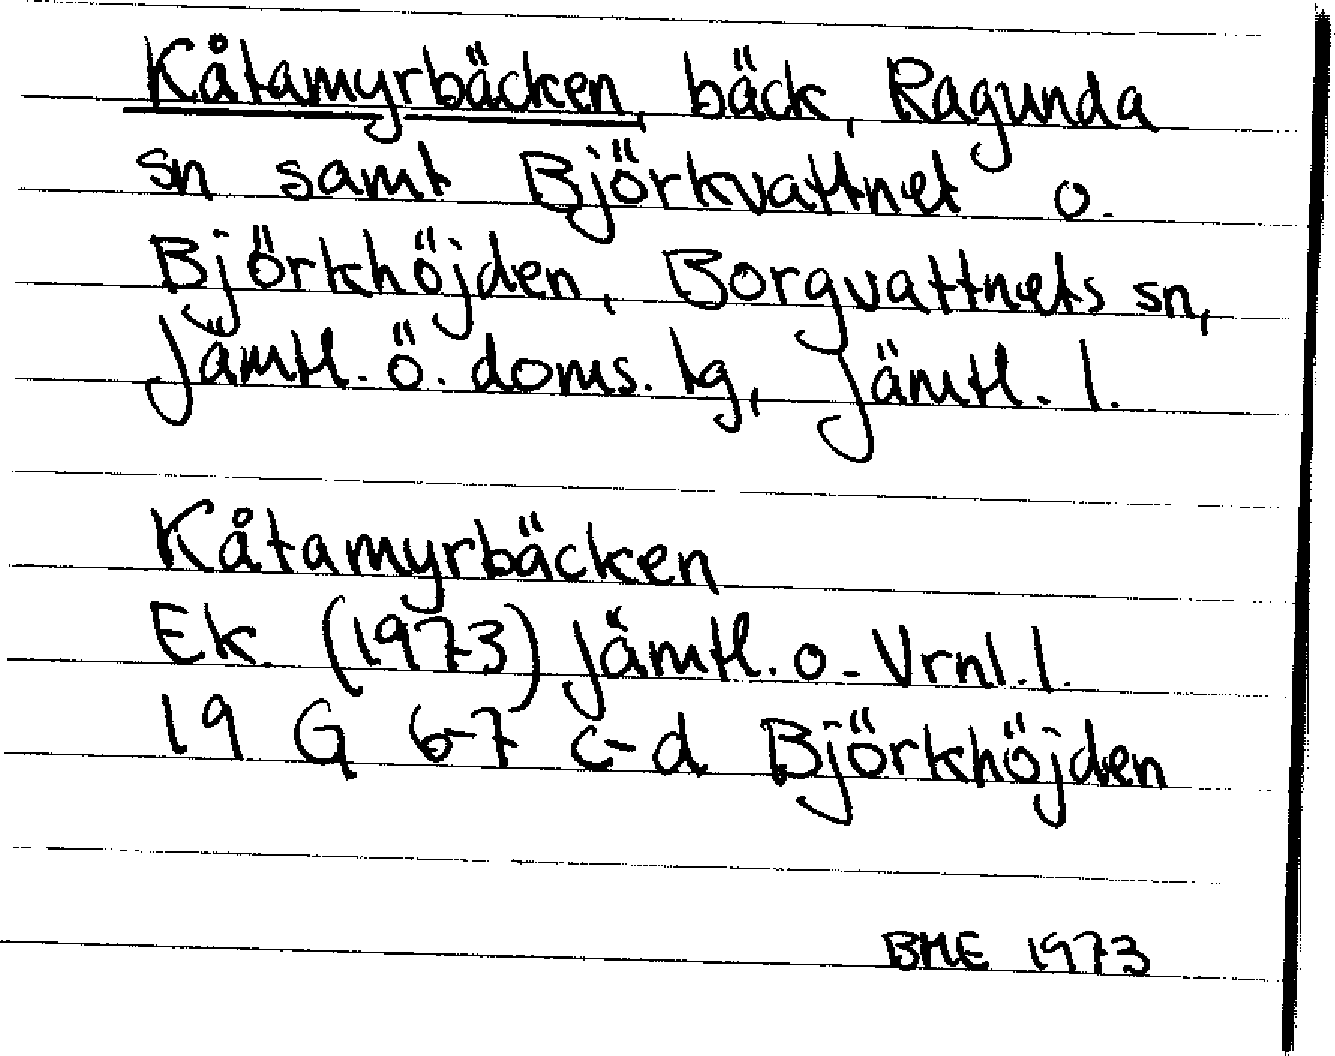 Kåtamyrbäcken, bäck, Ragunda
sn samt Björkvattnet o.
Björkhöjden, Borgvattnets sn,
Jämtl. ö. doms. tg, Jämtl. l.
Kåtamyrbäcken
Ek. (1973) Jämtl. o. Vrnl. l.
19 G 6-7 c-d Björkhöjden
BME 1973